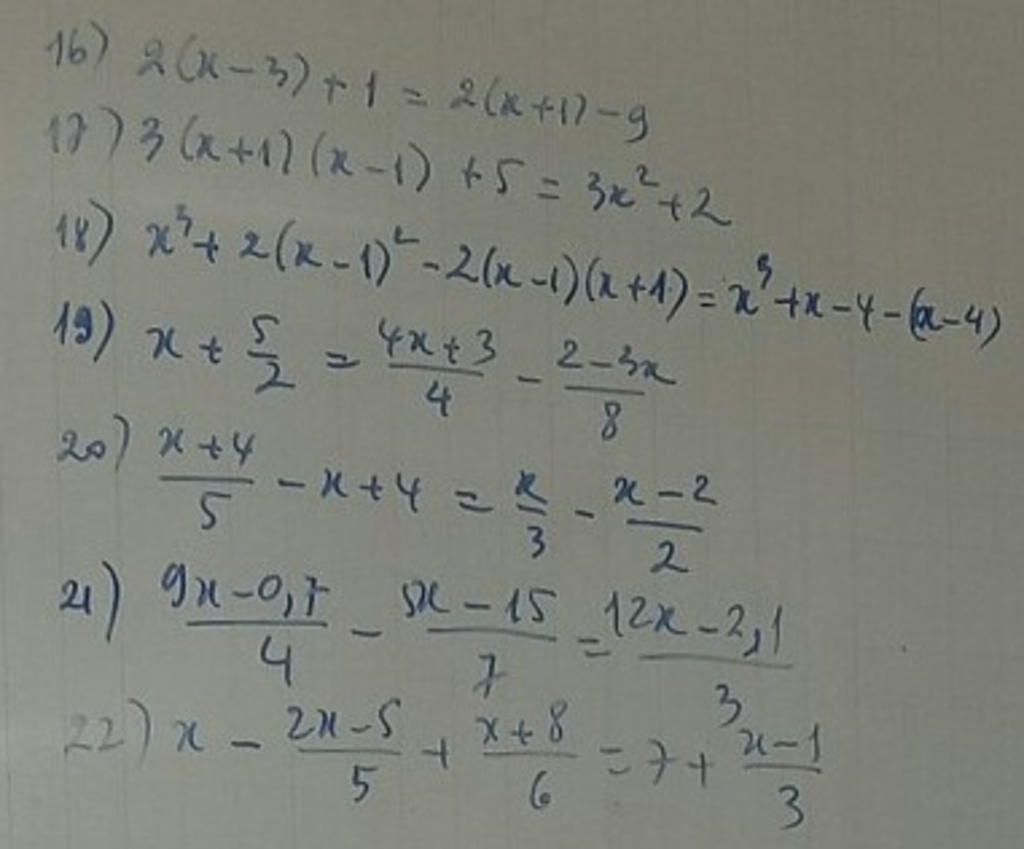 16) 2(x-3)+1 = 2(x+1)-9
17) 3(x+1)(x-1)+5 = 3x²+2
18) x³+2(x-1)²-2(x-1)(x+1) = x³+x-4-(x-4)
19) x + 5/2 = (4x+3)/4 - (2-3x)/8
20) (x+4)/5 - x+4 = x/3 - (x-2)/2
21) (9x-0,7)/4 - (5x-15)/7 = (12x-2,1)/3
22) x - (2x-5)/5 + (x+8)/6 = 7 + (x-1)/3